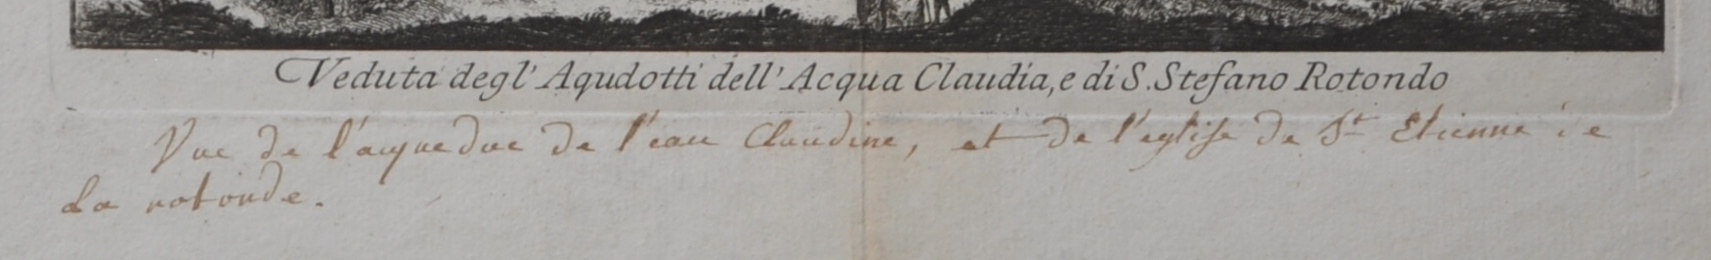 Veduta degl' Aqudotti dell' Acqua Claudia, e di S. Stefano Rotondo
Vue de l'acqueduc de l'eau Claudine, et de l'eglise de St Etienne de
la rotonde.